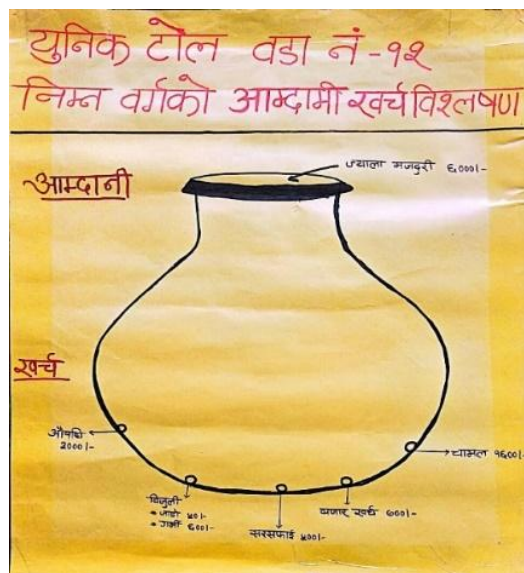 युनिक टोल वडा नं - १२
निम्न वर्गको आम्दामी खर्च विश्लषण
ज्याला मजदुरी ६०००।-
आम्दानी
खर्च
औषधि
२०००।-
चामल १६००।-
बिजुली
• जाडो ५०।-
• गर्मी ६००।-
सरसफाई ५००।-
बजार खर्च ७००।-